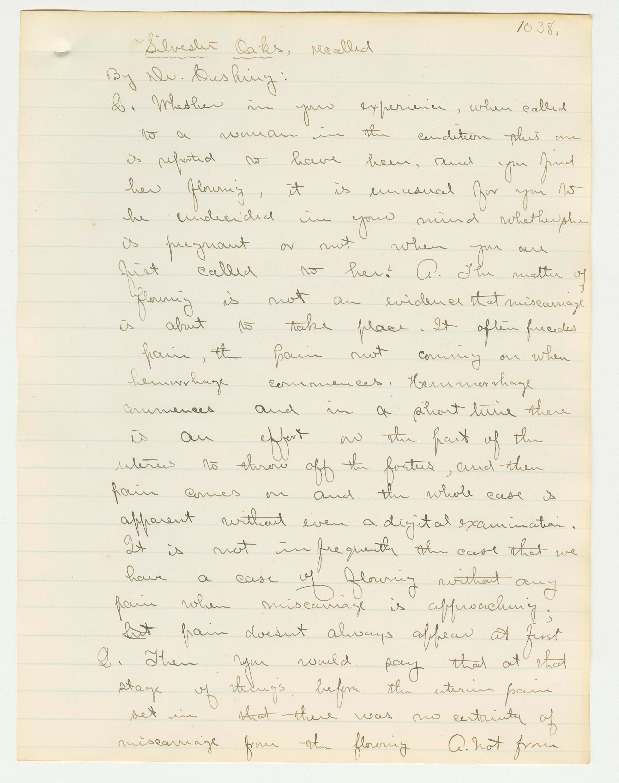 1038.
Silvester Oaks, recalled
By Dr. Cushing:
Q. Whether in your experience, when called
to a woman in the condition this one
is reported to have been, and you find
her flowing, it is unusual for you to
be undecided in your mind whether she
is pregnant or not when you are
first called to her? A. The matter of
flowing is not an evidence that miscarriage
is about to take place. It often precedes
pain, the pain not coming on when
hemorrhage commences. Hemmorrhage
commences and in a short time there
is an effort on the part of the
uterus to throw off the foetus, and then
pain comes on and the whole case is
apparent without even a digital examination.
It is not infrequently the case that we
have a case of flowing without any
pain when miscarriage is approaching;
but pain doesn't always appear at first
Q. Then you would say that at that
stage of things before the uterine pain
set in that there was no certainty of
miscarriage from the flowing A. Not from